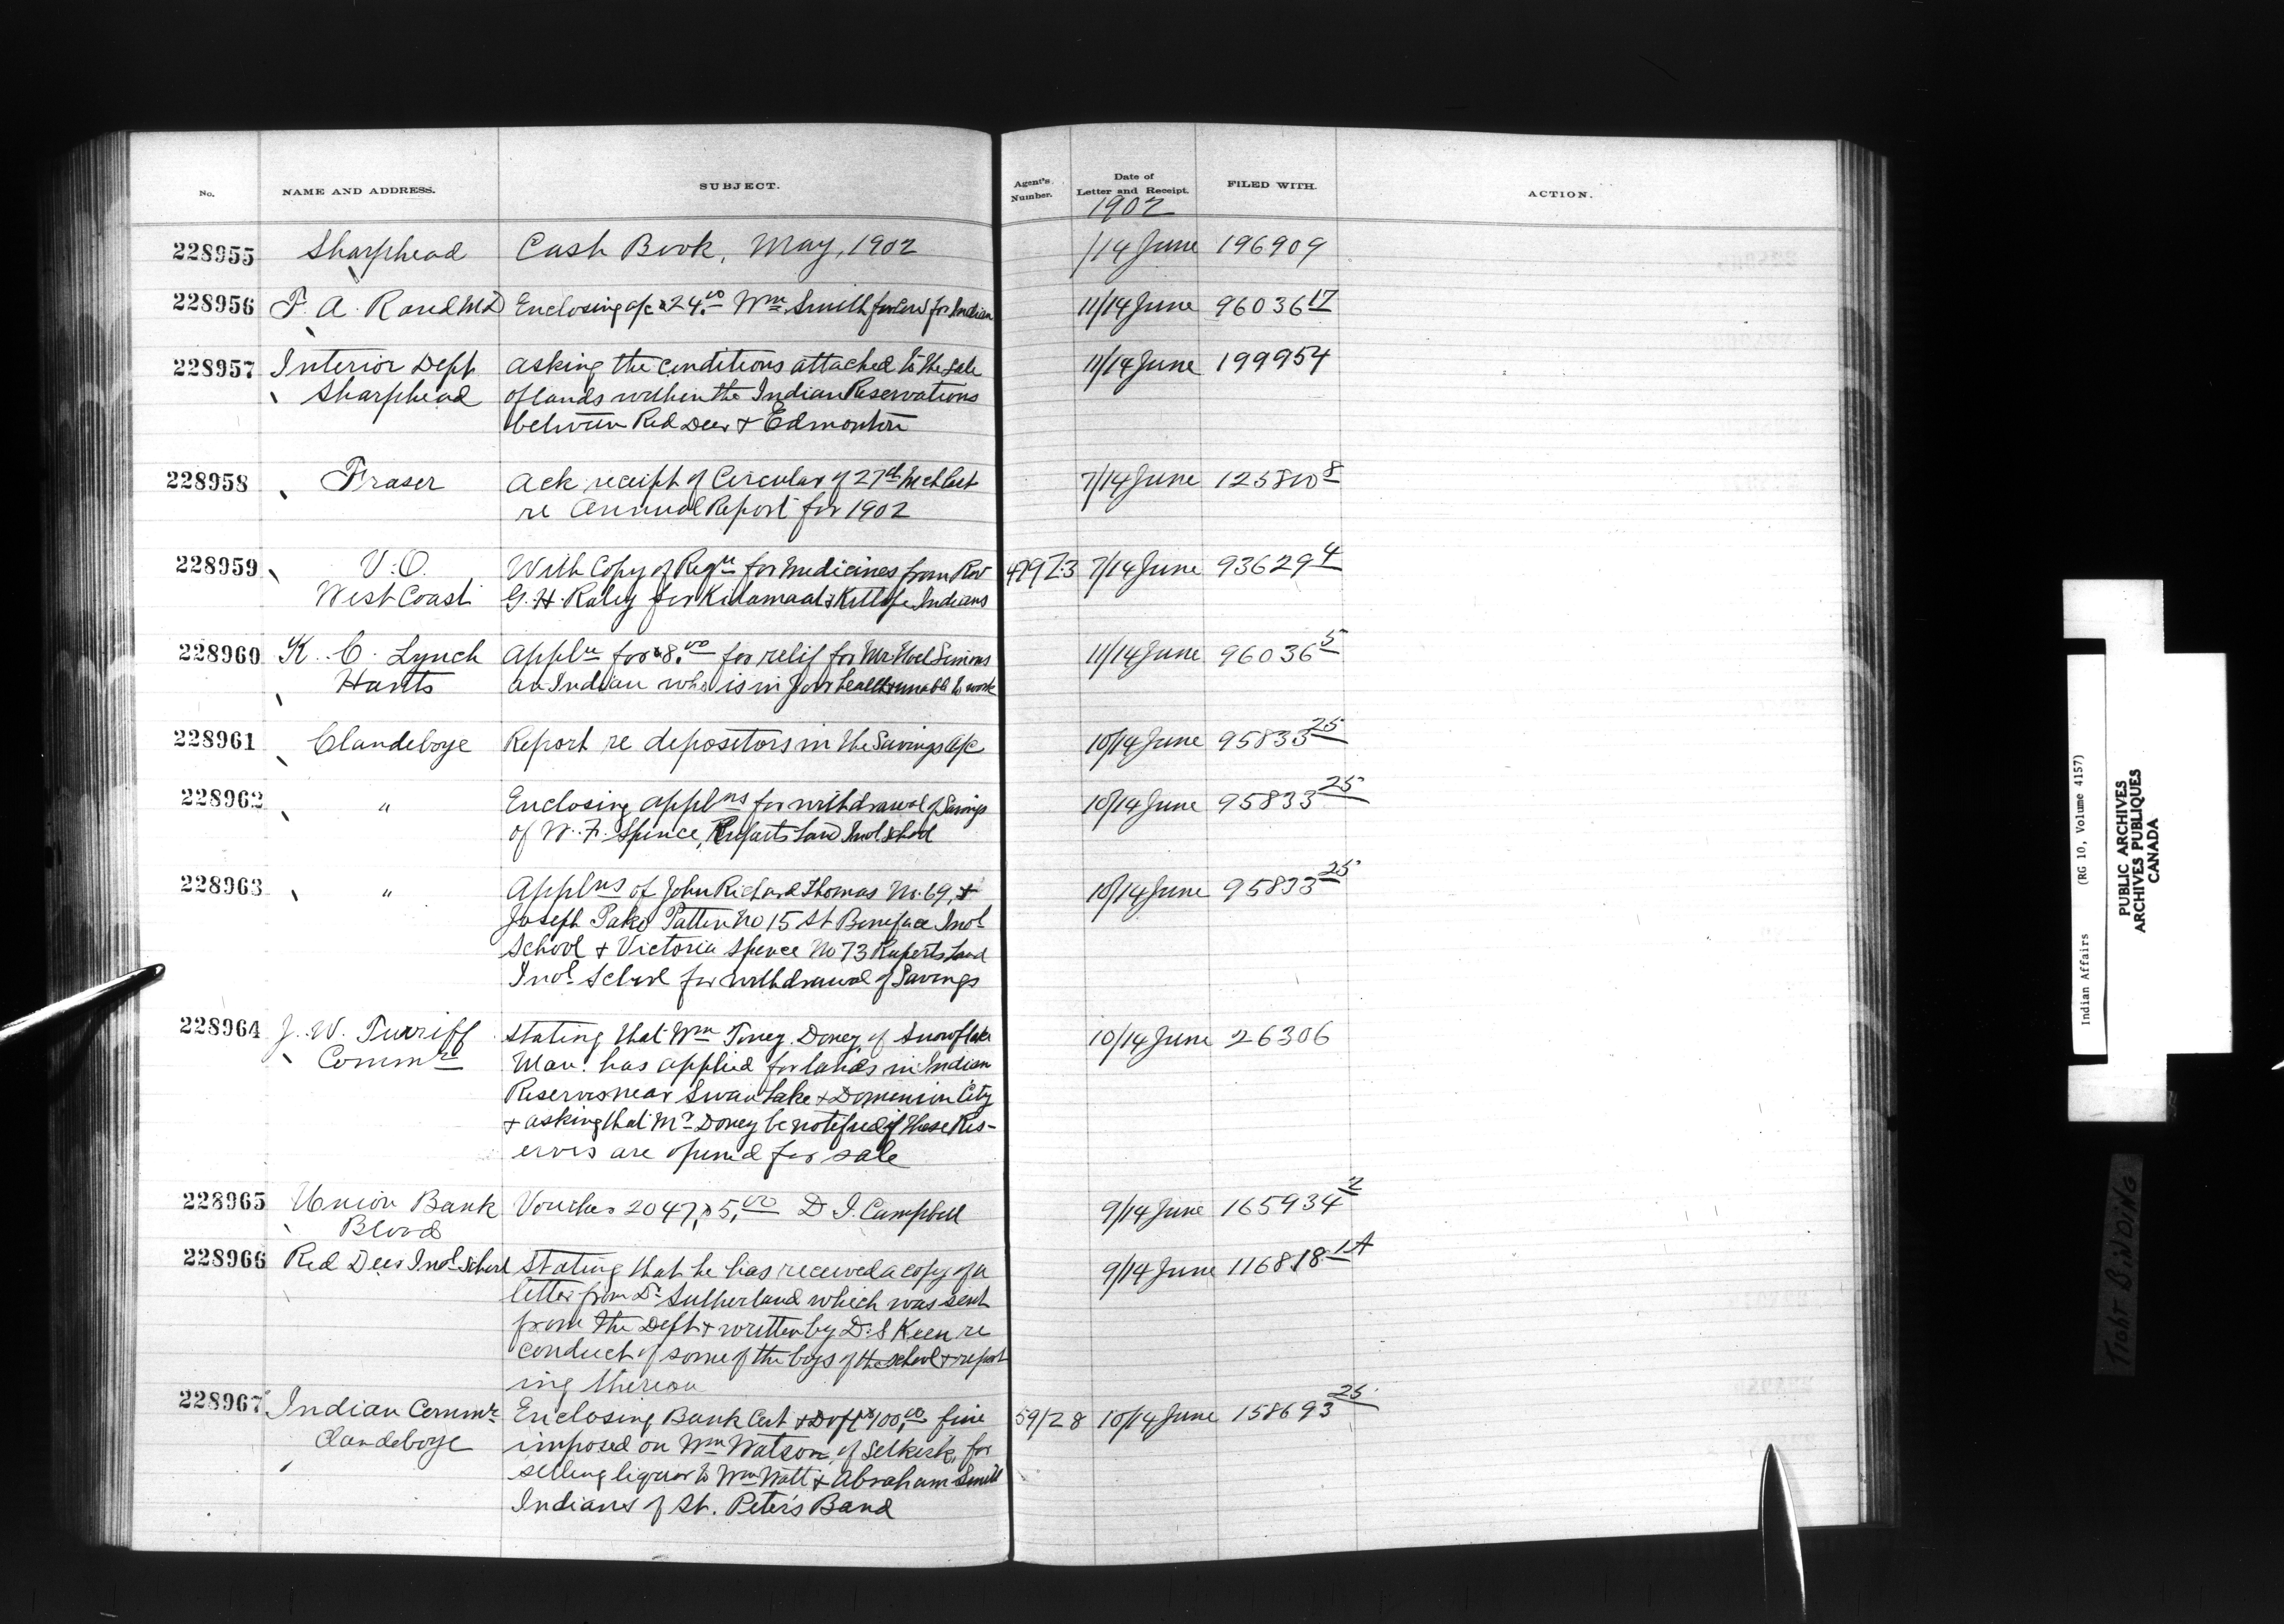 No. NAME AND ADDRESS. SUBJECT. Agent's Number. Date of Letter and Receipt. FILED WITH. ACTION.
1902
228955 Sharphead Cash Book, May, 1902 /14 June 196909
228956 F. A. Rand MD Enclosing a/c $24.00 Wm Smith for Indian 11/14 June 96036 17
228957 Interior Dept. asking the conditions attached to the sale 11/14 June 199954
Sharphead of lands within the Indian Reservations
between Red Deer & Edmonton
228958 Fraser Ack receipt of Circular of 27th last 7/14 June 125810 8
re Annual Report for 1902
228959 V.O. With Copy of Reqn for medicines from Rev 7/14 June 93629 4
West Coast G. H. Raley for Kitamaat & Kitlope Indians
228960 K. C. Lynch Appln for $8.00 for relif for Mr Noel Simons 11/14 June 96036 5
Hants an Indian who is in poor health & unable to work
228961 Clandeboye Report re depositors in the Savings a/c 10/14 June 95833 25
228962 " Enclosing applns for withdrawal of Savings 10/14 June 95833 25
of W. F. Spence, Ruperts Land Indl School
228963 " Applns of John Richard Thomas No. 69, & 10/14 June 95833 25
Joseph Pako Patten No 15 St Boniface Indl
School & Victoria Spence No 73 Ruperts Land
Indl School for withdrawal of Savings
228964 J. W. Turriff stating that Wm Doney of Snowflake 10/14 June 26306
Commr Man. has applied for lands in Indian
Reserves near Swan Lake & Dominion City
& asking that Mr Doney be notified if these Res-
erves are opened for sale
228965 Union Bank Voucher 2047, $5.00 D I. Campbell 9/14 June 165934 2
Blood
228966 Red Deer Indl School stating that he has received a copy of a 9/14 June 116818 1A
letter from Dr Sutherland which was sent
from the Dept & written by D. S Keen re
conduct of some of the boys of the school & report
ing thereon
228967 Indian Commr Enclosing Bank Cert & Dft $100.00 fine 59/28 10/14 June 158693 25
Clandeboye imposed on Wm Watson of Selkirk, for
selling liquor to Wm Watt & Abraham Smith
Indians of St. Peter's Band
Indian Affairs (RG 10, Volume 4157)
PUBLIC ARCHIVES
ARCHIVES PUBLIQUES
CANADA
TIGHT BINDING